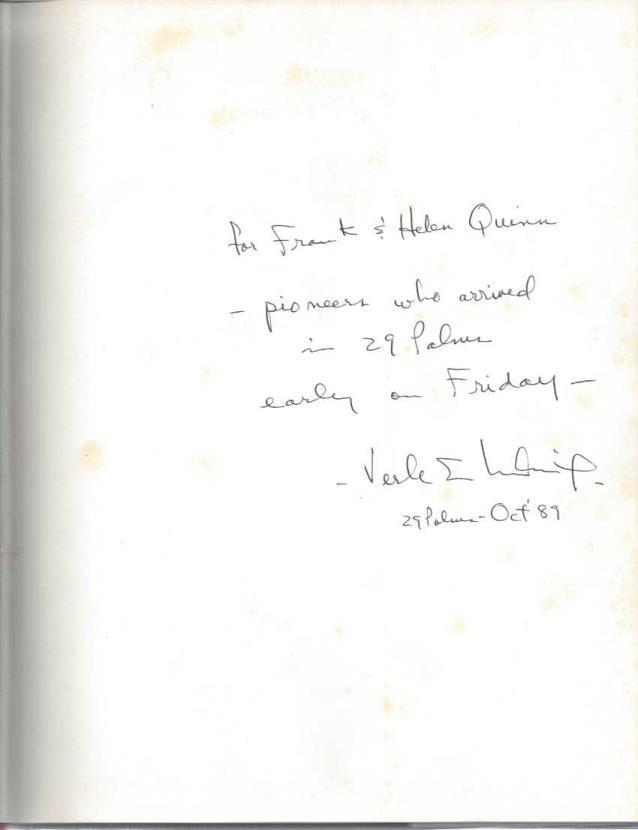 for Frank & Helen Quinn
- pioneers who arrived
in 29 Palms
early on Friday -
- Verle E
29 Palms - Oct '89